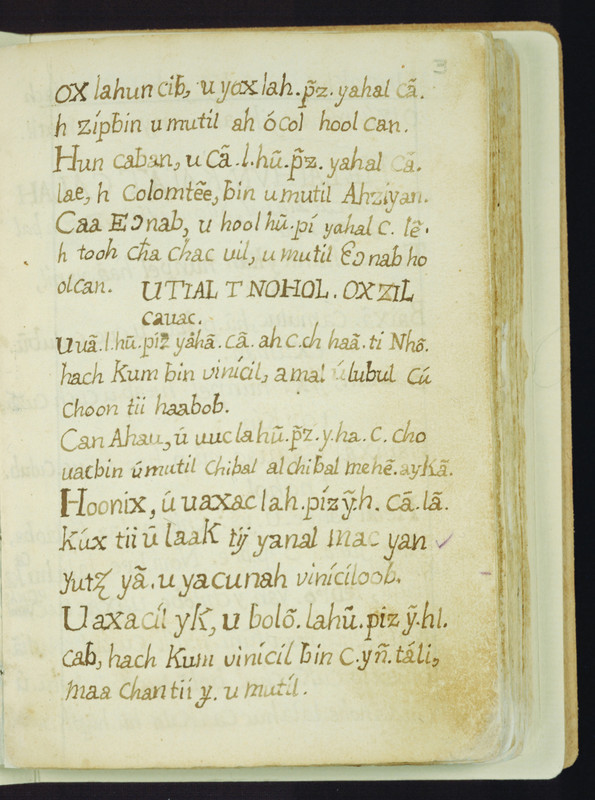 3
OX lahun cib, u yox lah. p̃z. yahal cã.
h zípbin u mutíl ah ócol hool can.
Hun caban, u cã.l.hũ.p̃z. yahal cã.
lae, h Colomtẽe, bin u mutil Ahziyan.
Caa Eɔnab, u hool hũ.pí yahal c. lẽ.
h tooh cħa chac uil, u mutíl Eɔnab ho
olcan. UTIAL T NOHOL. OXZIL
cauac.
Uuã.l.hũ.piz yáhã.cã. ah c.ch haã.ti Nhõ.
hach Kum bin vinícil, amal úlubul cú
choon tii haabob.
Can Ahau, ú uuclahũ.p̃z.y.ha.c. cho
uacbin úmutil chibal alchibal mehẽ. ayKã.
Hoonix, ú uaxac lah.píz ỹ.h. cã.lã.
Kúx tii ũ laaK tij yanal mac yan
yutz yã. u yacunah viníciloob.
Uaxacíl yK, u bolõ. lahũ.piz ỹ.hl.
cab, hach Kum vinícil bin c.yñ.táli,
maa chantii y. u mutíl.